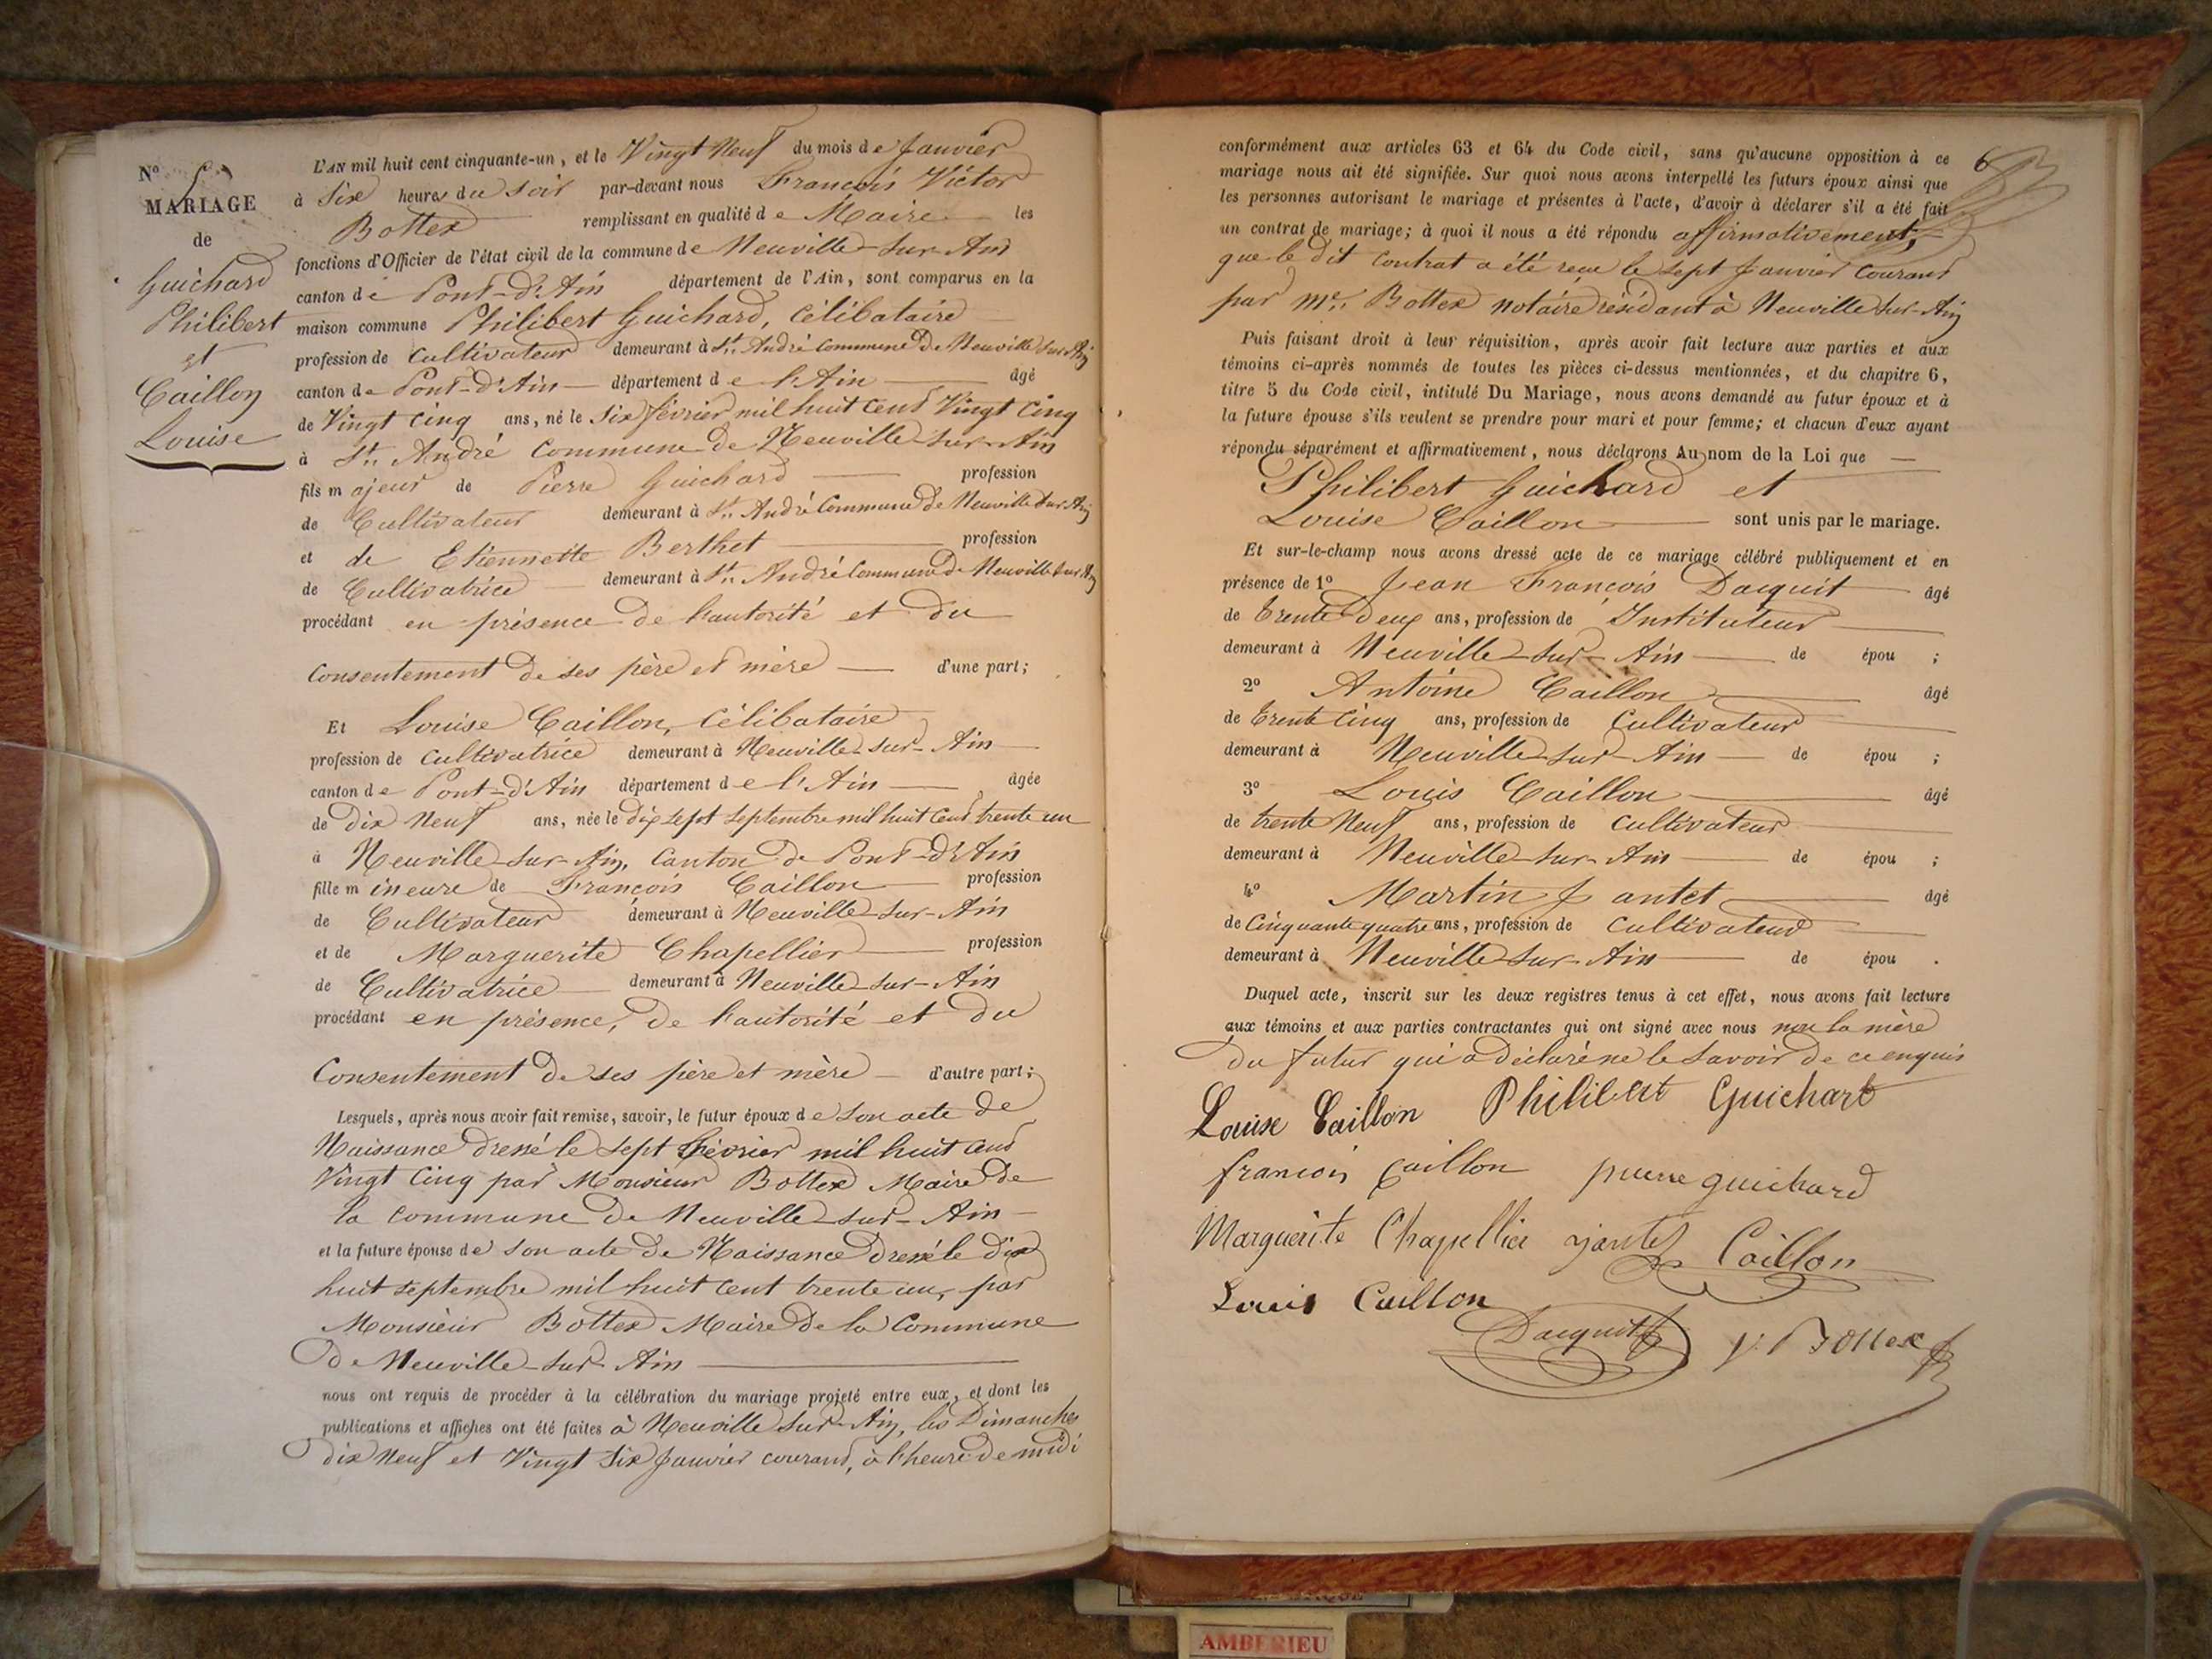 N° 5
MARIAGE
de
Guichard
Philibert
et
Caillon
Louise
L'AN mil huit cent cinquante-un, et le Vingt Neuf du mois de Janvier
à Six heures du Soir par-devant nous François Victor
Bottex remplissant en qualité de Maire les
fonctions d'Officier de l'état civil de la commune de Neuville-sur-Ain
canton de Pont-d'Ain département de l'Ain, sont comparus en la
maison commune Philibert Guichard, Célibataire
profession de Cultivateur demeurant à St. André Commune De Neuville sur Ain
canton de Pont-d'Ain département de l'Ain âgé
de Vingt Cinq ans, né le Six février mil huit cent Vingt Cinq
à St. André Commune de Neuville-sur-Ain
fils majeur de Pierre Guichard profession
de Cultivateur demeurant à St. André Commune De Neuville sur Ain
et de Etiennette Berthet profession
de Cultivatrice demeurant à St. André Commune De Neuville sur Ain
procédant en présence de l'autorité et du
Consentement De ses père et mère d'une part;
Et Louise Caillon, Célibataire
profession de Cultivatrice demeurant à Neuville-sur-Ain
canton de Pont-d'Ain département de l'Ain âgée
de Dix Neuf ans, née le dix sept Septembre mil huit cent trente un
à Neuville-sur-Ain, Canton De Pont-d'Ain
fille mineure de François Caillon profession
de Cultivateur demeurant à Neuville-sur-Ain
et de Marguerite Chapellier profession
de Cultivatrice demeurant à Neuville-sur-Ain
procédant en présence, De l'autorité et Du
Consentement De ses père et mère d'autre part;
Lesquels, après nous avoir fait remise, savoir, le futur époux de Son acte De
Naissance Dressé le Sept février mil huit cent
Vingt Cinq par Monsieur Bottex Maire De
la Commune De Neuville-sur-Ain
et la future épouse de Son acte De Naissance Dressé le dix
huit septembre mil huit cent trente un, par
Monsieur Bottex Maire De la Commune
De Neuville-sur-Ain
nous ont requis de procéder à la célébration du mariage projeté entre eux, et dont les
publications et affiches ont été faites à Neuville sur-Ain, les Dimanches
dix Neuf et Vingt Six Janvier courant, à l'heure De midi
6
conformément aux articles 63 et 64 du Code civil, sans qu'aucune opposition à ce
mariage nous ait été signifiée. Sur quoi nous avons interpellé les futurs époux ainsi que
les personnes autorisant le mariage et présentes à l'acte, d'avoir à déclarer s'il a été fait
un contrat de mariage; à quoi il nous a été répondu affirmativement,
que le dit Contrat a été reçu le Sept Janvier Courant
par Me. Bottex notaire résidant à Neuville sur-Ain
Puis faisant droit à leur réquisition, après avoir fait lecture aux parties et aux
témoins ci-après nommés de toutes les pièces ci-dessus mentionnées, et du chapitre 6,
titre 5 du Code civil, intitulé Du Mariage, nous avons demandé au futur époux et à
la future épouse s'ils veulent se prendre pour mari et pour femme; et chacun d'eux ayant
répondu séparément et affirmativement, nous déclarons Au nom de la Loi que
Philibert Guichard et
Louise Caillon sont unis par le mariage.
Et sur-le-champ nous avons dressé acte de ce mariage célébré publiquement et en
présence de 1° Jean François Dacquit âgé
de Trente Deux ans, profession de Instituteur
demeurant à Neuville-sur-Ain de épou ;
2° Antoine Caillon âgé
de Trente Cinq ans, profession de Cultivateur
demeurant à Neuville-sur-Ain de épou ;
3° Louis Caillon âgé
de trente Neuf ans, profession de Cultivateur
demeurant à Neuville-sur-Ain de épou ;
4° Martin Jantet âgé
de Cinquante quatre ans, profession de Cultivateur
demeurant à Neuville-sur-Ain de épou .
Duquel acte, inscrit sur les deux registres tenus à cet effet, nous avons fait lecture
aux témoins et aux parties contractantes qui ont signé avec nous non la mère
du futur qui a déclaré ne le Savoir De ce enquis
Louise Caillon Philibert Guichart
francois Caillon pierre guichard
Marguerite Chapellier jantet Caillon
Louis Caillon
Dacquit V. Bottex
AMBERIEU